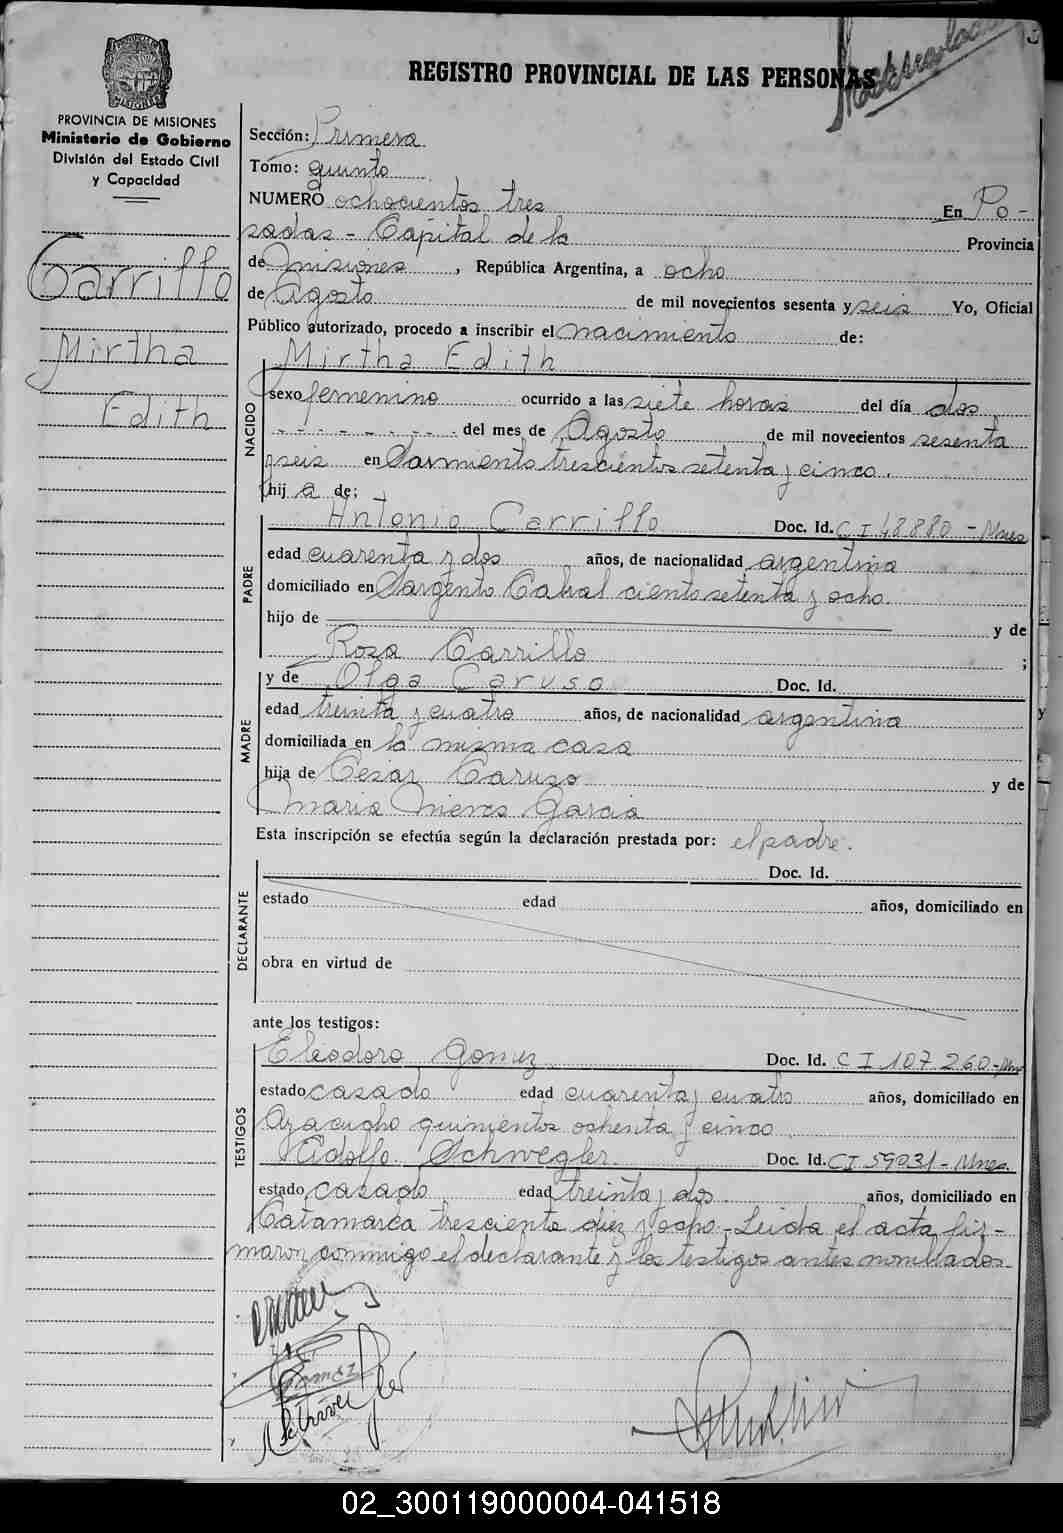 REGISTRO PROVINCIAL DE LAS PERSONAS
PROVINCIA DE MISIONES
Ministerio de Gobierno
División del Estado Civil
y Capacidad
Carrillo
Mirtha
Edith
Sección: Primera
Tomo: quinto
NUMERO ochocientos tres En Po-
sadas - Capital de la Provincia
de Misiones, República Argentina, a ocho
de Agosto de mil novecientos sesenta y seis Yo, Oficial
Público autorizado, procedo a inscribir el nacimiento de:
Mirtha Edith
NACIDO
sexo femenino ocurrido a las siete horas del día dos
del mes de Agosto de mil novecientos sesenta
y seis en Sarmiento trescientos setenta y cinco.
hij a de:
PADRE
Antonio Carrillo Doc. Id. C I 48880 - Mnes
edad cuarenta y dos años, de nacionalidad argentina
domiciliado en Sargento Cabral ciento setenta y ocho.
hijo de y de
Rosa Carrillo ;
MADRE
y de Olga Caruso Doc. Id.
edad treinta y cuatro años, de nacionalidad argentina
domiciliada en la misma casa
hija de Cesar Caruso y de
Maria Nieves Garcia
Esta inscripción se efectúa según la declaración prestada por: el padre.
DECLARANTE
Doc. Id.
estado edad años, domiciliado en
obra en virtud de
ante los testigos:
TESTIGOS
Eleodoro Gomez Doc. Id. C I 107260 - Mnes
estado casado edad cuarenta y cuatro años, domiciliado en
Ayacucho quinientos ochenta y cinco
Adolfo Schwegler. Doc. Id. C I 59031 - Mnes.
estado casado edad treinta y dos años, domiciliado en
Catamarca trescientos diez y ocho - Leida el acta fir-
maron conmigo el declarante y los testigos antes nombrados.
02_300119000004-041518